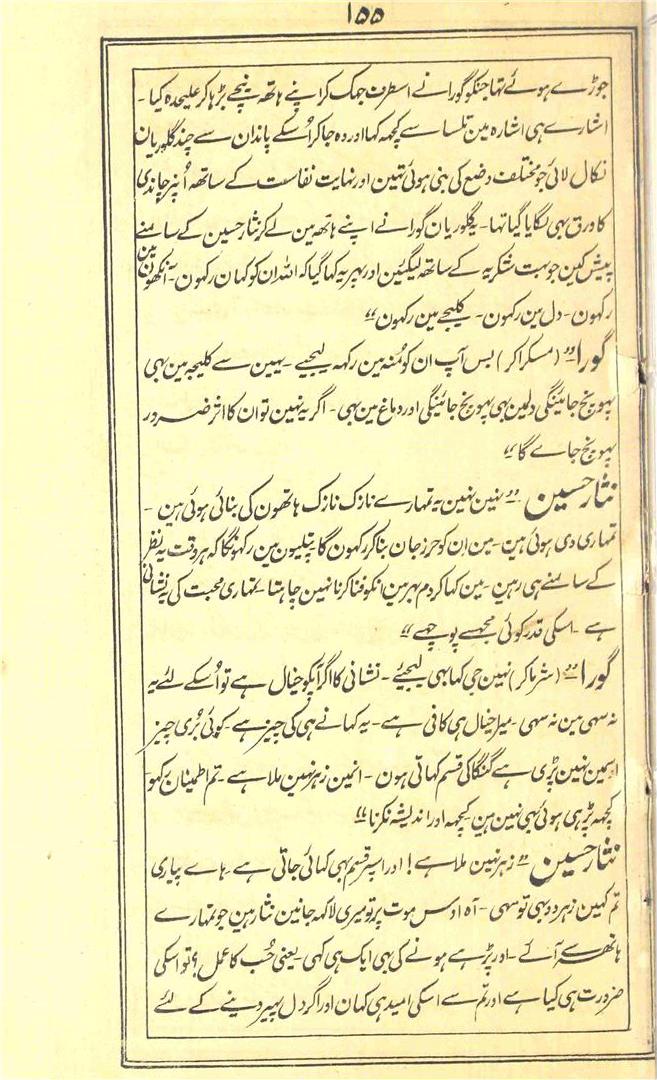 ۱۵۵
جوڑے ہوئے تہا جنکو گورا نے اسطرف جہک کر اپنے ہاتھ نیچے بڑہا کر علیحدہ کیا -
اشارے ہی اشارہ مین تلسا سے کچہہ کہا اور وہ جا کر اُسکے پاندان سے چند گلوریان
نکال لائی جو مختلف وضع کی بنی ہوئی تہین اور نہایت نفاست کے ساتھ اُنپر چاندی
کا ورق بہی لگایا گیا تہا - یہ گلوریان گورا نے اپنے ہاتھ مین لے کر نثار حسین کے سامنے
پیش کین جو بہت شکریہ کے ساتھ لیگئین اور پہر یہ کہا گیا کہ اللہ ان کو کہان رکہون - آنکہون مین
رکہون - دل مین رکہون - کلیجے مین رکہون"
گورا "(مسکرا کر) بس آپ ان کو مُنہ مین رکہہ لیجیے - یہین سے کلیجہ مین بہی
پہونچ جائینگی دلمین بہی پہونچ جائینگی اور دماغ مین بہی - اگر یہ نہین تو ان کا اثر ضرور
پہونچ جاے گا"
نثار حسین "نہین نہین یہ تمہارے نازک نازک ہاتھون کی بنائی ہوئی ہین -
تمہاری دی ہوئی ہین - مین ان کو حرز جان بنا کر رکہون گا پتلیون مین رکہونگا کہ ہر وقت یہ نظر
کے سامنے ہی رہین - مین کہا کر دم بہر مین انکو فنا کرنا نہین چاہتا - تمہاری محبت کی یہ نشانی
ہے - اسکی قدر کوئی مجہسے پوچہے"
گورا "(شرما کر) نہین جی کہا بہی لیجیئے - نشانی کا اگر آپکو خیال ہے تو اُسکے لئے یہ
نہ سہی مین نہ سہی - میرا خیال ہی کافی ہے - یہ کہانے ہی کی چیز ہے - کوئی بُری چیز
اسمین نہین پڑی ہے گنگا کی قسم کہاتی ہون - انمین زہر نہین ملا ہے - تم اطمینان رکہو
کچہہ پڑہی ہوئی بہی نہین ہین کچہہ اور اندیشہ نکرنا"
نثار حسین "زہر نہین ملا ہے! اور اسپر قسم بہی کہائی جاتی ہے - ہاے پیاری
تم کہین زہر دو بہی تو سہی - آہ اوس موت پر تو میری لاکہہ جانین نثار ہین جو تمہارے
ہاتھ سے آئے - اور پڑہے ہونے کی بہی ایک ہی کہی - یعنی حُب کا عمل؟ تو اسکی
ضرورت ہی کیا ہے اور تم سے اسکی امید ہی کہان اور اگر دل پہیر دینے کے لئے